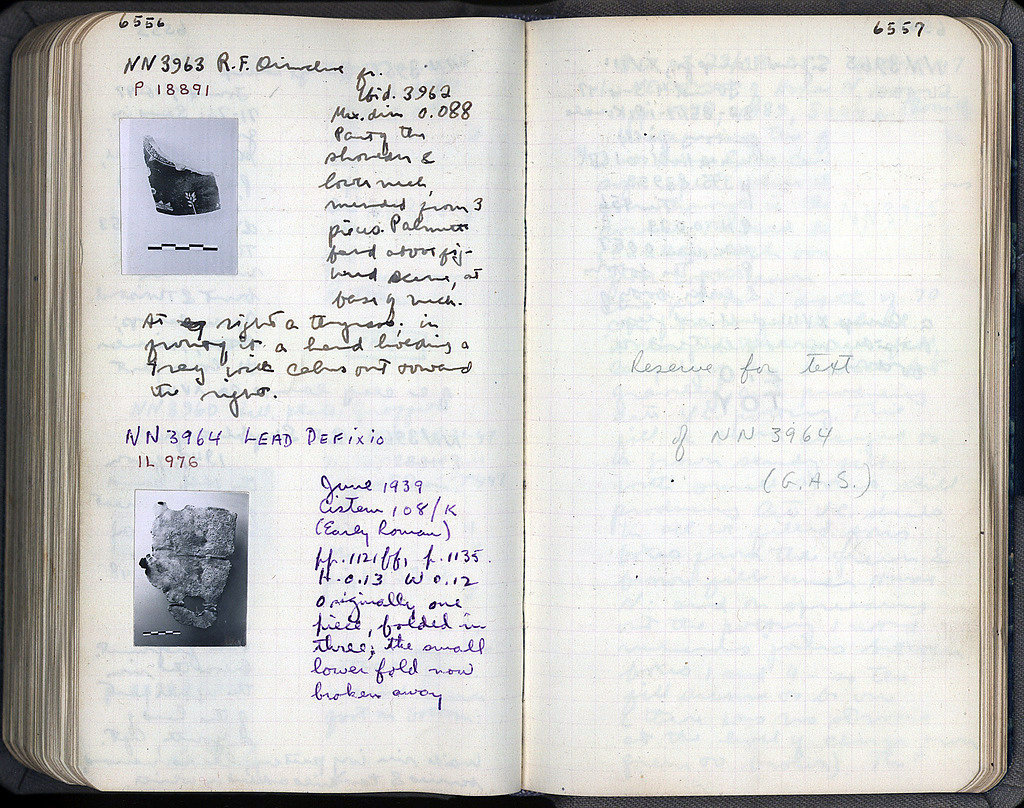 6556
NN 3963 R.F. Oinochoe fr.
P 18891
Ibid. 3962
Max. dim 0.088
Part of the
shoulder &
lower neck,
mended from 3
pieces. Palmette
band above fig-
ured scene, at
base of neck.
At right a thyrsos. in
front of it a hand holding a
tray with cakes out toward
the right.
NN 3964 LEAD DEFIXIO
IL 976
June 1939
Cistern 108/K
(Early Roman)
pp. 1121ff, p. 1135.
H. 0.13 W 0.12
Originally one
piece, folded in
three; the small
lower fold now
broken away
6557
Reserve for text
of NN 3964
(G.A.S.)